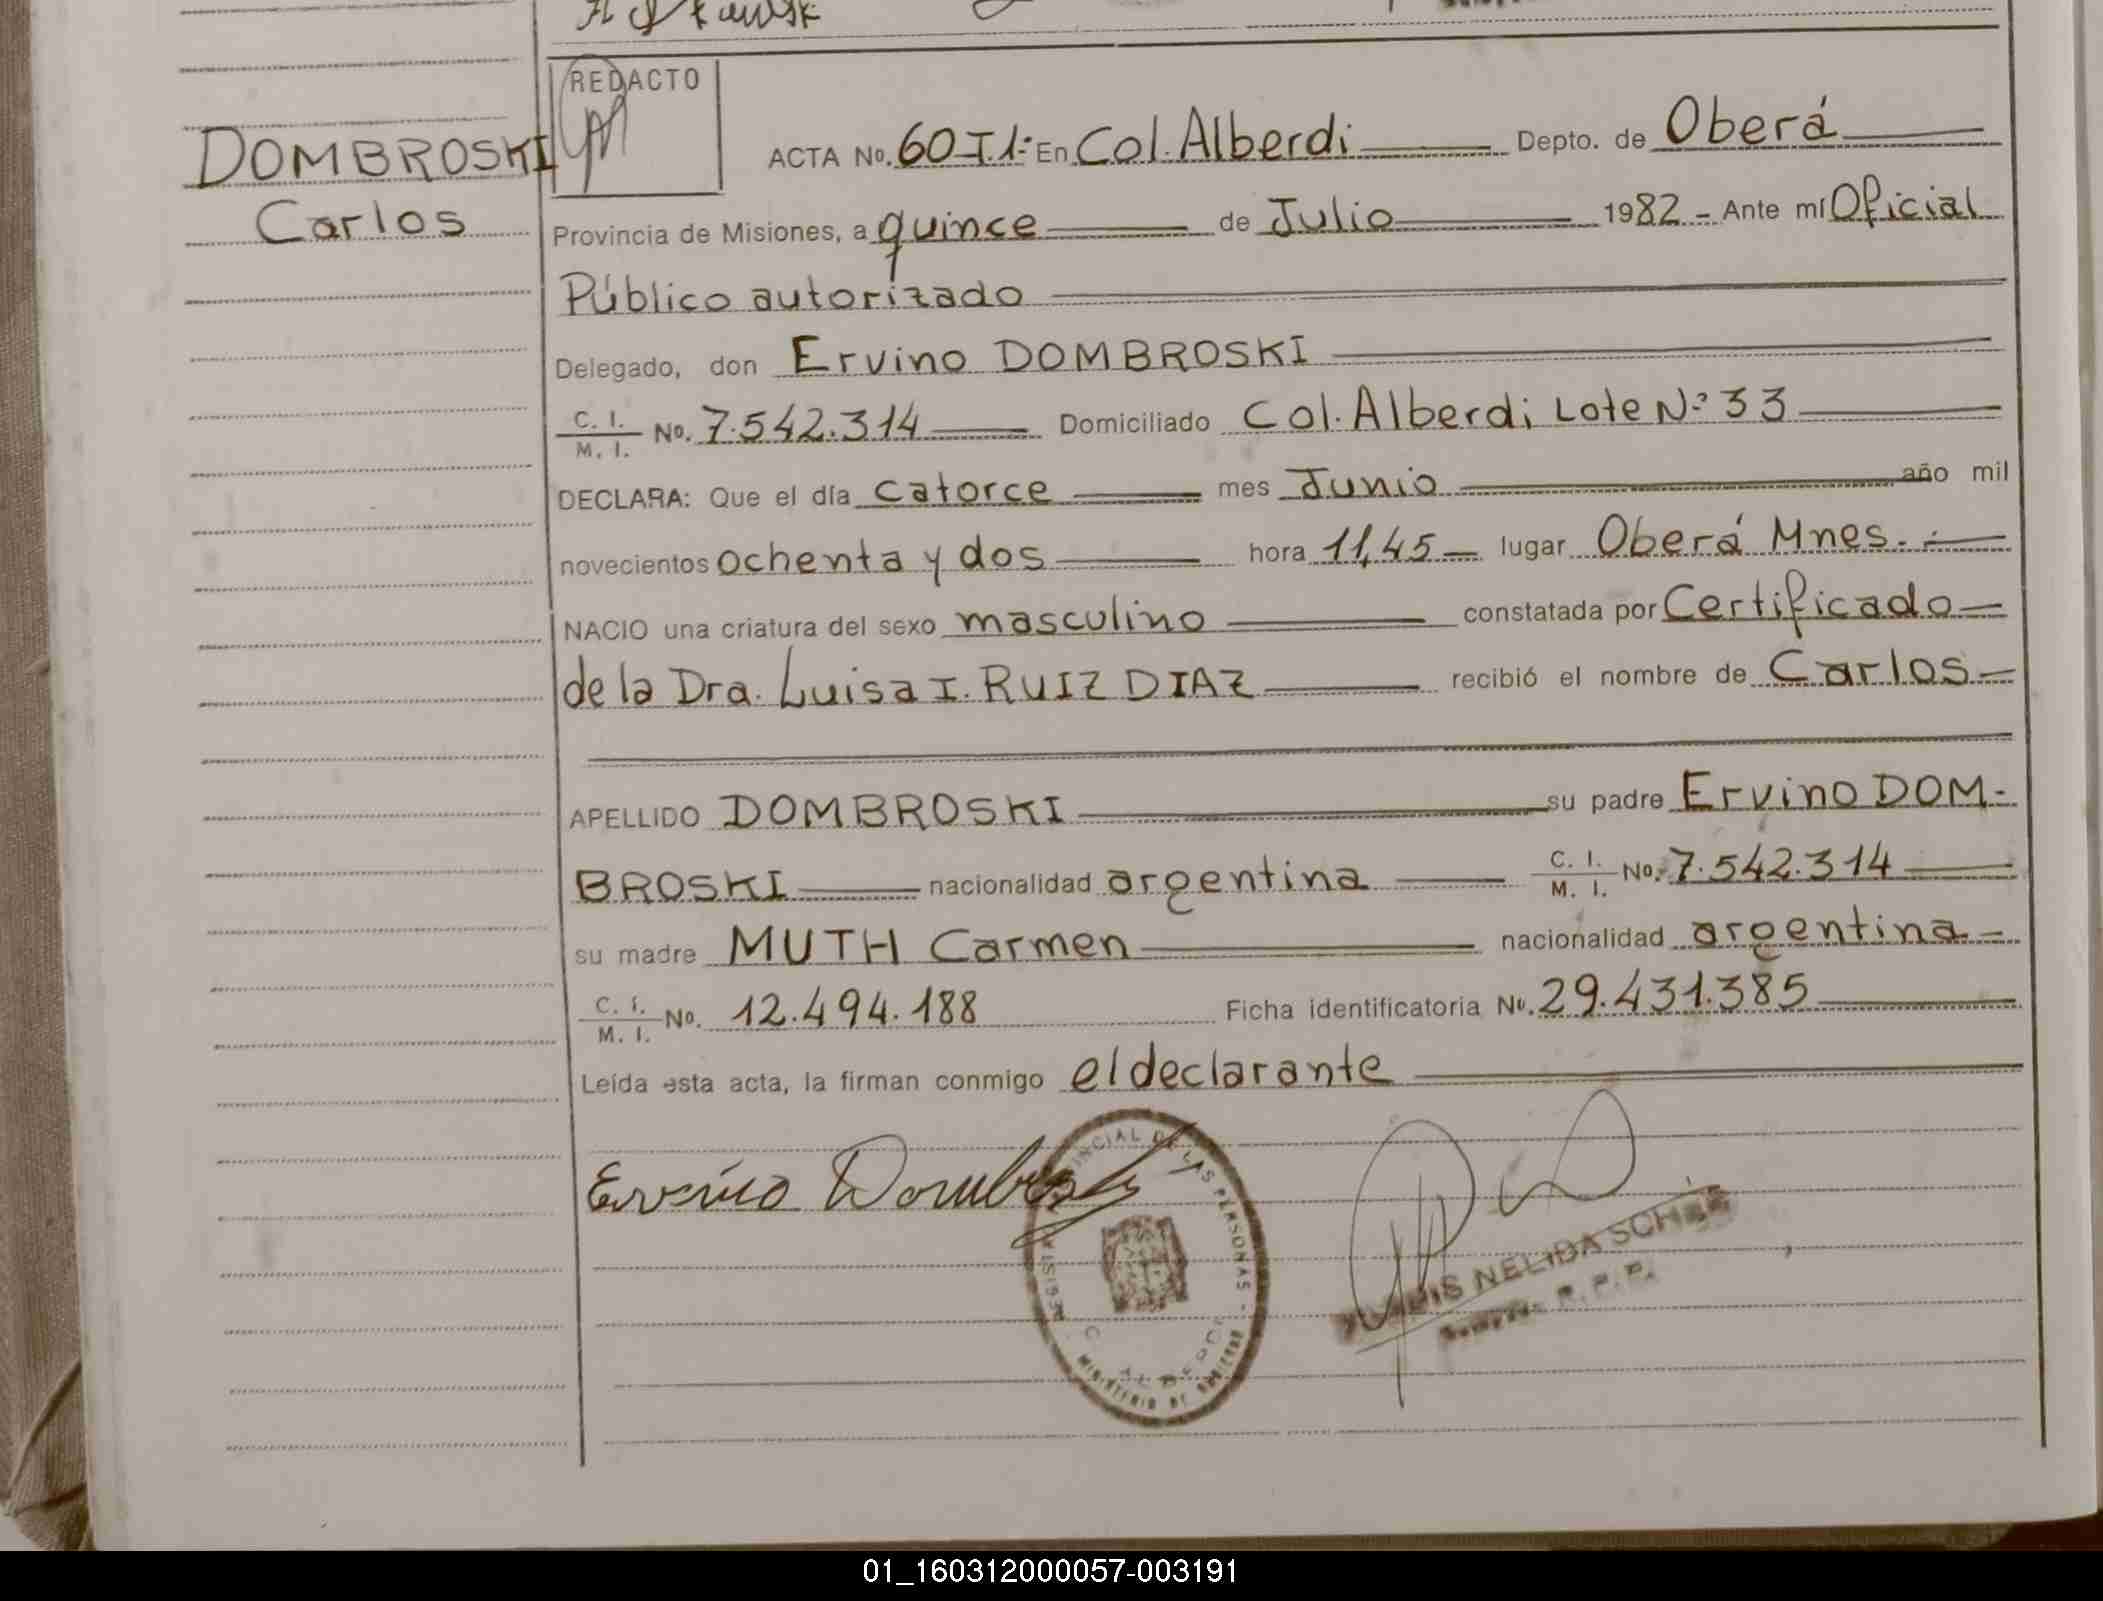 DOMBROSKI
Carlos
REDACTO
ACTA No. 60 T.1:- En Col. Alberdi Depto. de Oberá
Provincia de Misiones, a quince de Julio 1982.- Ante mí Oficial
Público autorizado
Delegado, don Ervino DOMBROSKI
C. I. / M. I. No. 7.542.314 Domiciliado Col. Alberdi Lote Nº 33
DECLARA: Que el día catorce mes Junio año mil
novecientos ochenta y dos hora 11,45 lugar Oberá Mnes.-
NACIO una criatura del sexo masculino constatada por Certificado
de la Dra. Luisa I. RUIZ DIAZ recibió el nombre de Carlos
APELLIDO DOMBROSKI su padre Ervino DOM-
BROSKI nacionalidad argentina C. I. / M. I. No. 7.542.314
su madre MUTH Carmen nacionalidad argentina
C. I. / M. I. No. 12.494.188 Ficha identificatoria No. 29.431.385
Leída esta acta, la firman conmigo el declarante
Ervino Dombroski
DE LAS PERSONAS
MINISTERIO DE GOBIERNO
NELIDA
R. P. P.
01_160312000057-003191